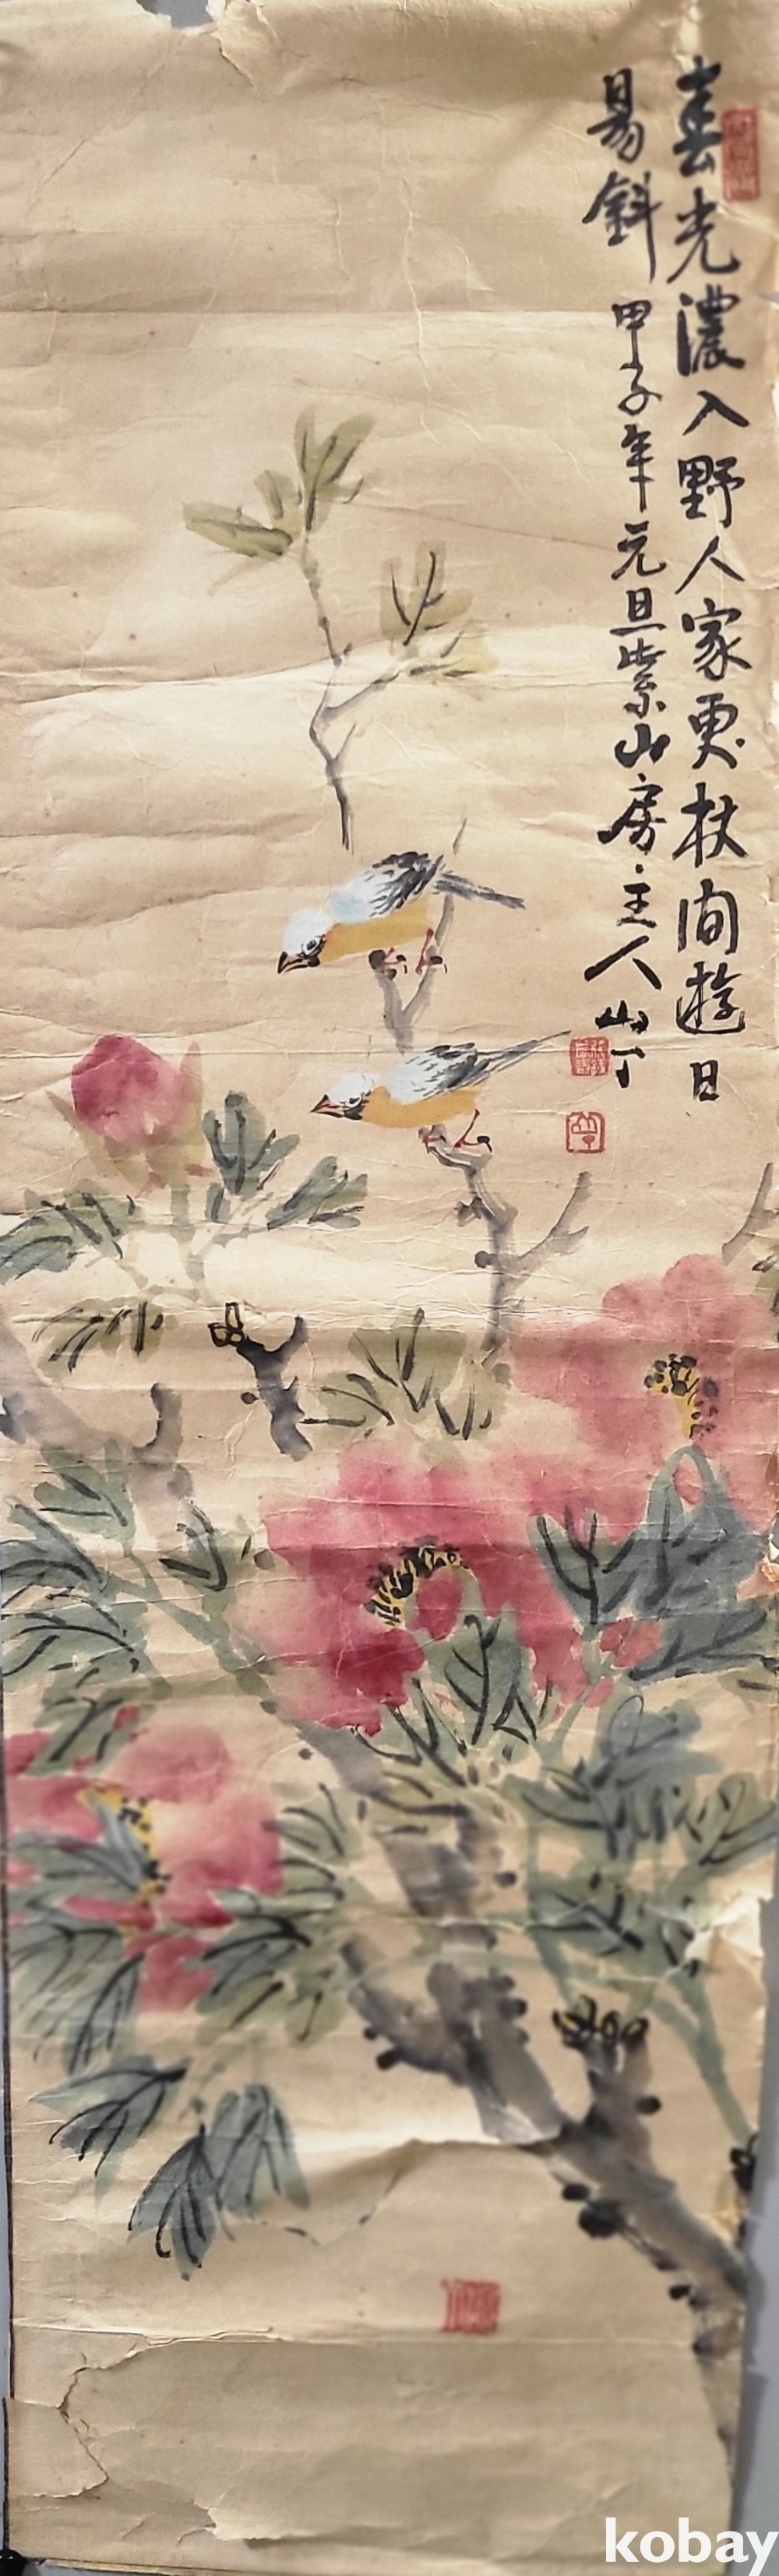 春光濃入野人家更杖闲遊日
易斜 甲子年元旦紫山房主人山丁
kobay